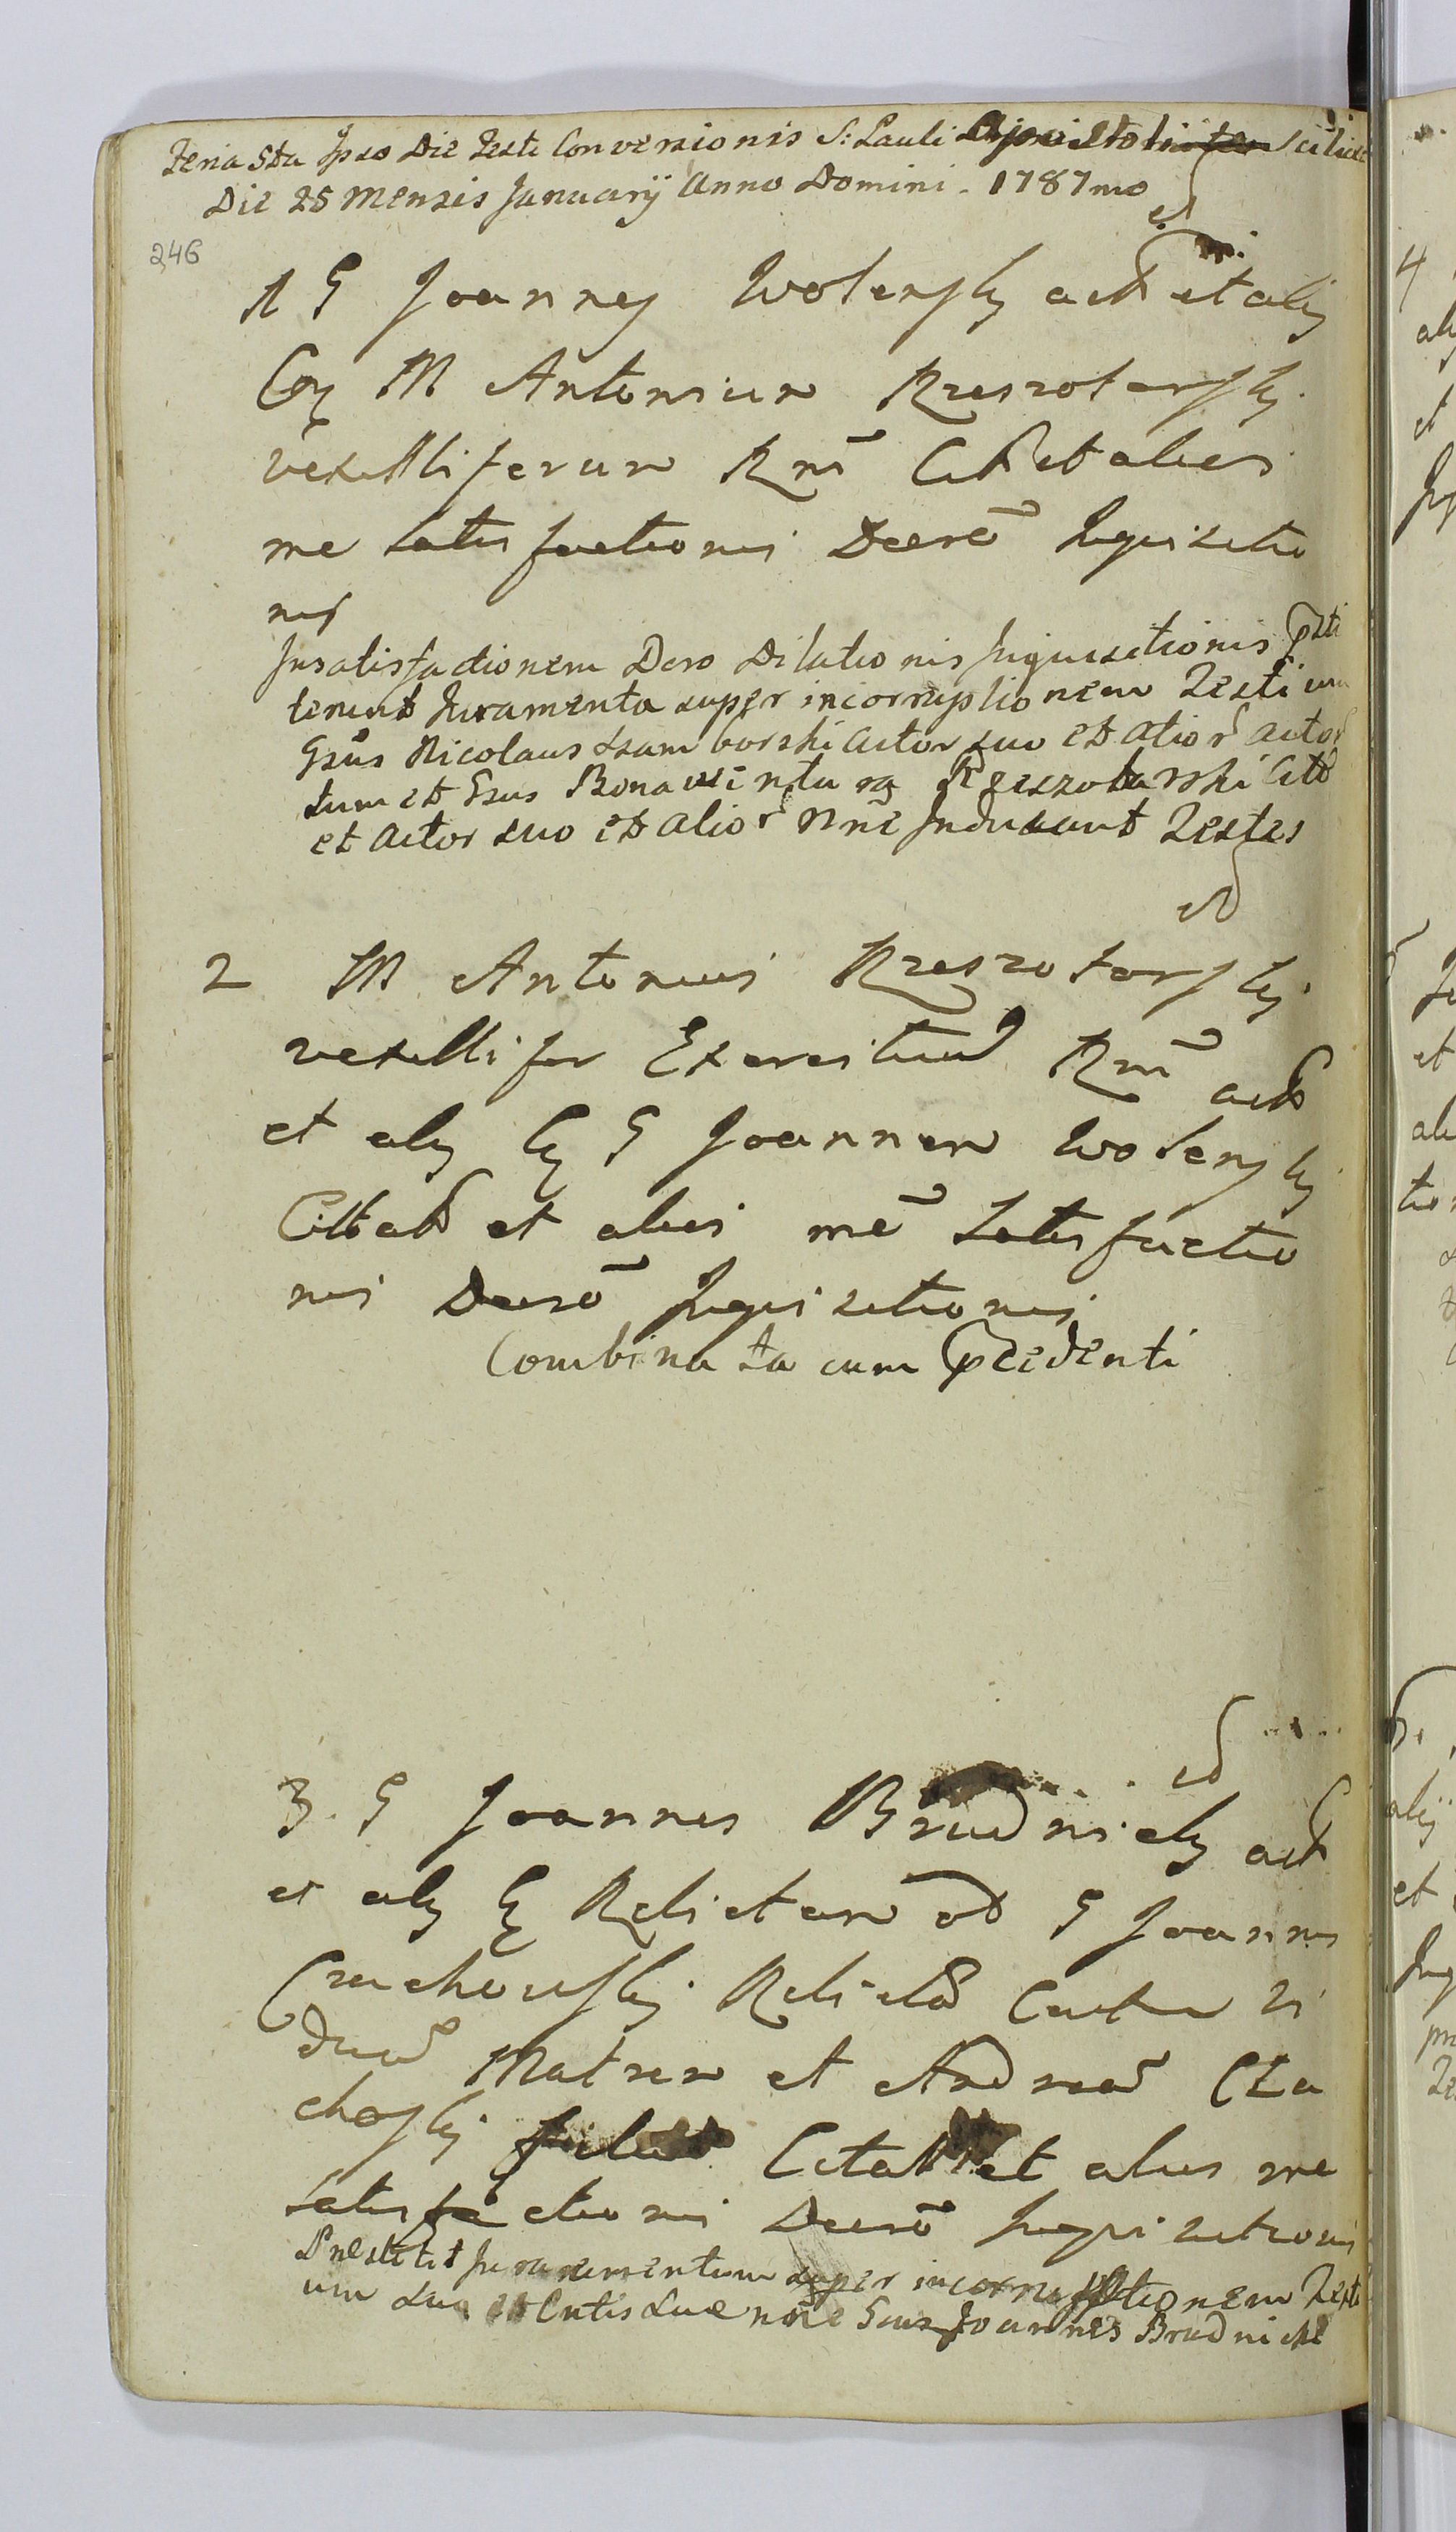 Feria 5ta Ipso Die Festi Conversionis S: Pauli Apostoli scilicet
Die 25 Mensis Januarÿ Anno Domini. 1787mo
246
1 G Joannes Wolensky act et alÿ
Coq M Antonium Rzeszotarsky
vexilliferum Rni Citt et alios
me satisfactionis Decrō Inquisitio
nis
In satisfactionem Dcro Dilationis Inquisitionis
terunt Juramenta super incorruptionem Testium
Gsus Nicolaus Szamborski Actor suo et alior actor
tum et Gsus Bonawentura Rzeszotarski Citt
et Actor suo et alior nne Inducunt Testes
2 M Antonius Rzeszotarsky
vexillifer Exercituū Rni act
et alÿ Cq G Joannem Wolensky
Cittat et alios mē satisfactio
nis Decrō Inquisitionis
Combinata cum pcedenti
3. G Joannes Brudnicky act
et alÿ Cq Relictam od G Joannis
Czachowsky Relictā
duā Matrem et Andreā Cza
chosky Citatt et alios me
satisfactionis Decrō Inquisitionis
Prestitit Juramentum super incorruptionem Testi
um suo et Cntis sue nōe Gsus Joannes Brudnicki